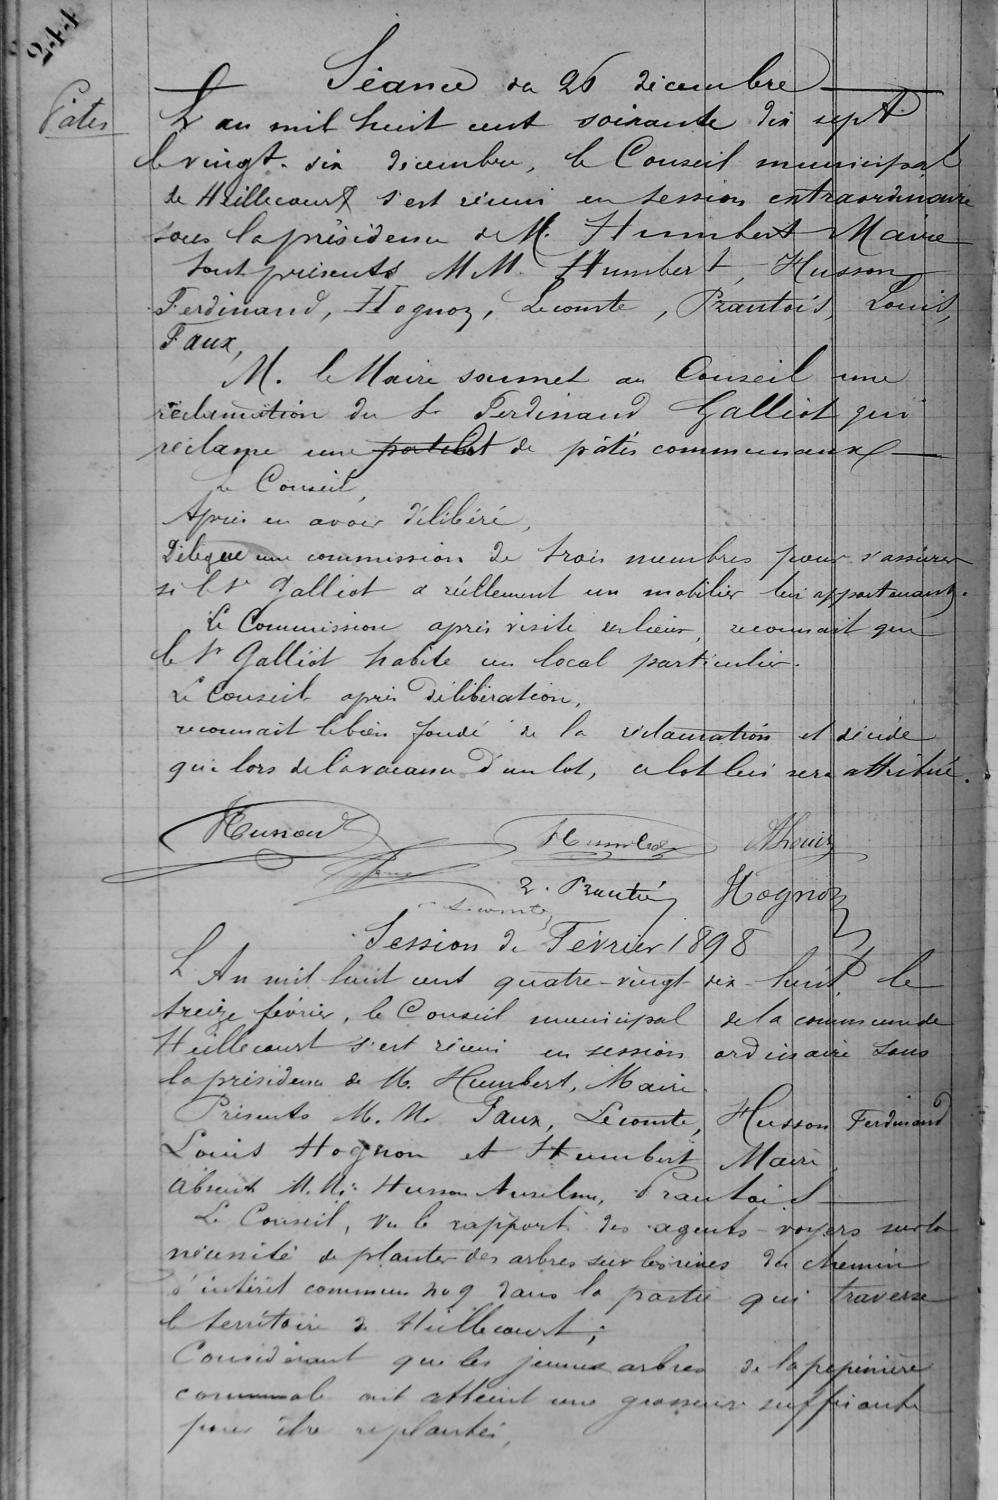 244
Séance du 26 décembre
Pâtis
L'an mil huit cent soixante dix sept
le vingt-six décembre, le Conseil municipal
de Heillecourt s'est réuni en session extraordinaire
sous la présidence de M. Humbert Maire
Sont présents MM. Humbert, Husson
Ferdinand, Hognon, Lecomte, Prautois, Louis,
Faux,
M. le Maire soumet au Conseil une
réclamation du Sr Ferdinand Galliot qui
réclame une de pâtis communaux
Le Conseil,
Après en avoir délibéré,
Délègue une commission de trois membres pour s'assurer
si le Sr Galliot a réellement un mobilier lui appartenant.
La Commission, après visite des lieux, reconnait que
le Sr Galliot habite un local particulier.
Le Conseil après délibération,
reconnait le bien fondé de la réclamation et décide
que lors de la vacance d'un lot, ce lot lui sera attribué.
Humbert
Prautois Hognon
Lecomte
Session de Février 1898
L'An mil huit cent quatre-vingt dix-huit le
treize février, le Conseil municipal de la commune de
Heillecourt s'est réuni en session ordinaire sous
la présidence de M. Humbert, Maire
Présents M. M. Faux, Lecomte, Husson Ferdinand
Louis Hognon et Humbert Maire
Absents M. M. Husson Anselme, Prautois
Le Conseil, vu le rapport des agents-voyers sur la
nécessité de planter des arbres sur les rives du chemin
d'intérêt commun no 9 dans la partie qui traverse
le territoire de Heillecourt;
Considérant que les jeunes arbres de la pépinière
communale ont atteint une grosseur suffisante
pour être replantés,